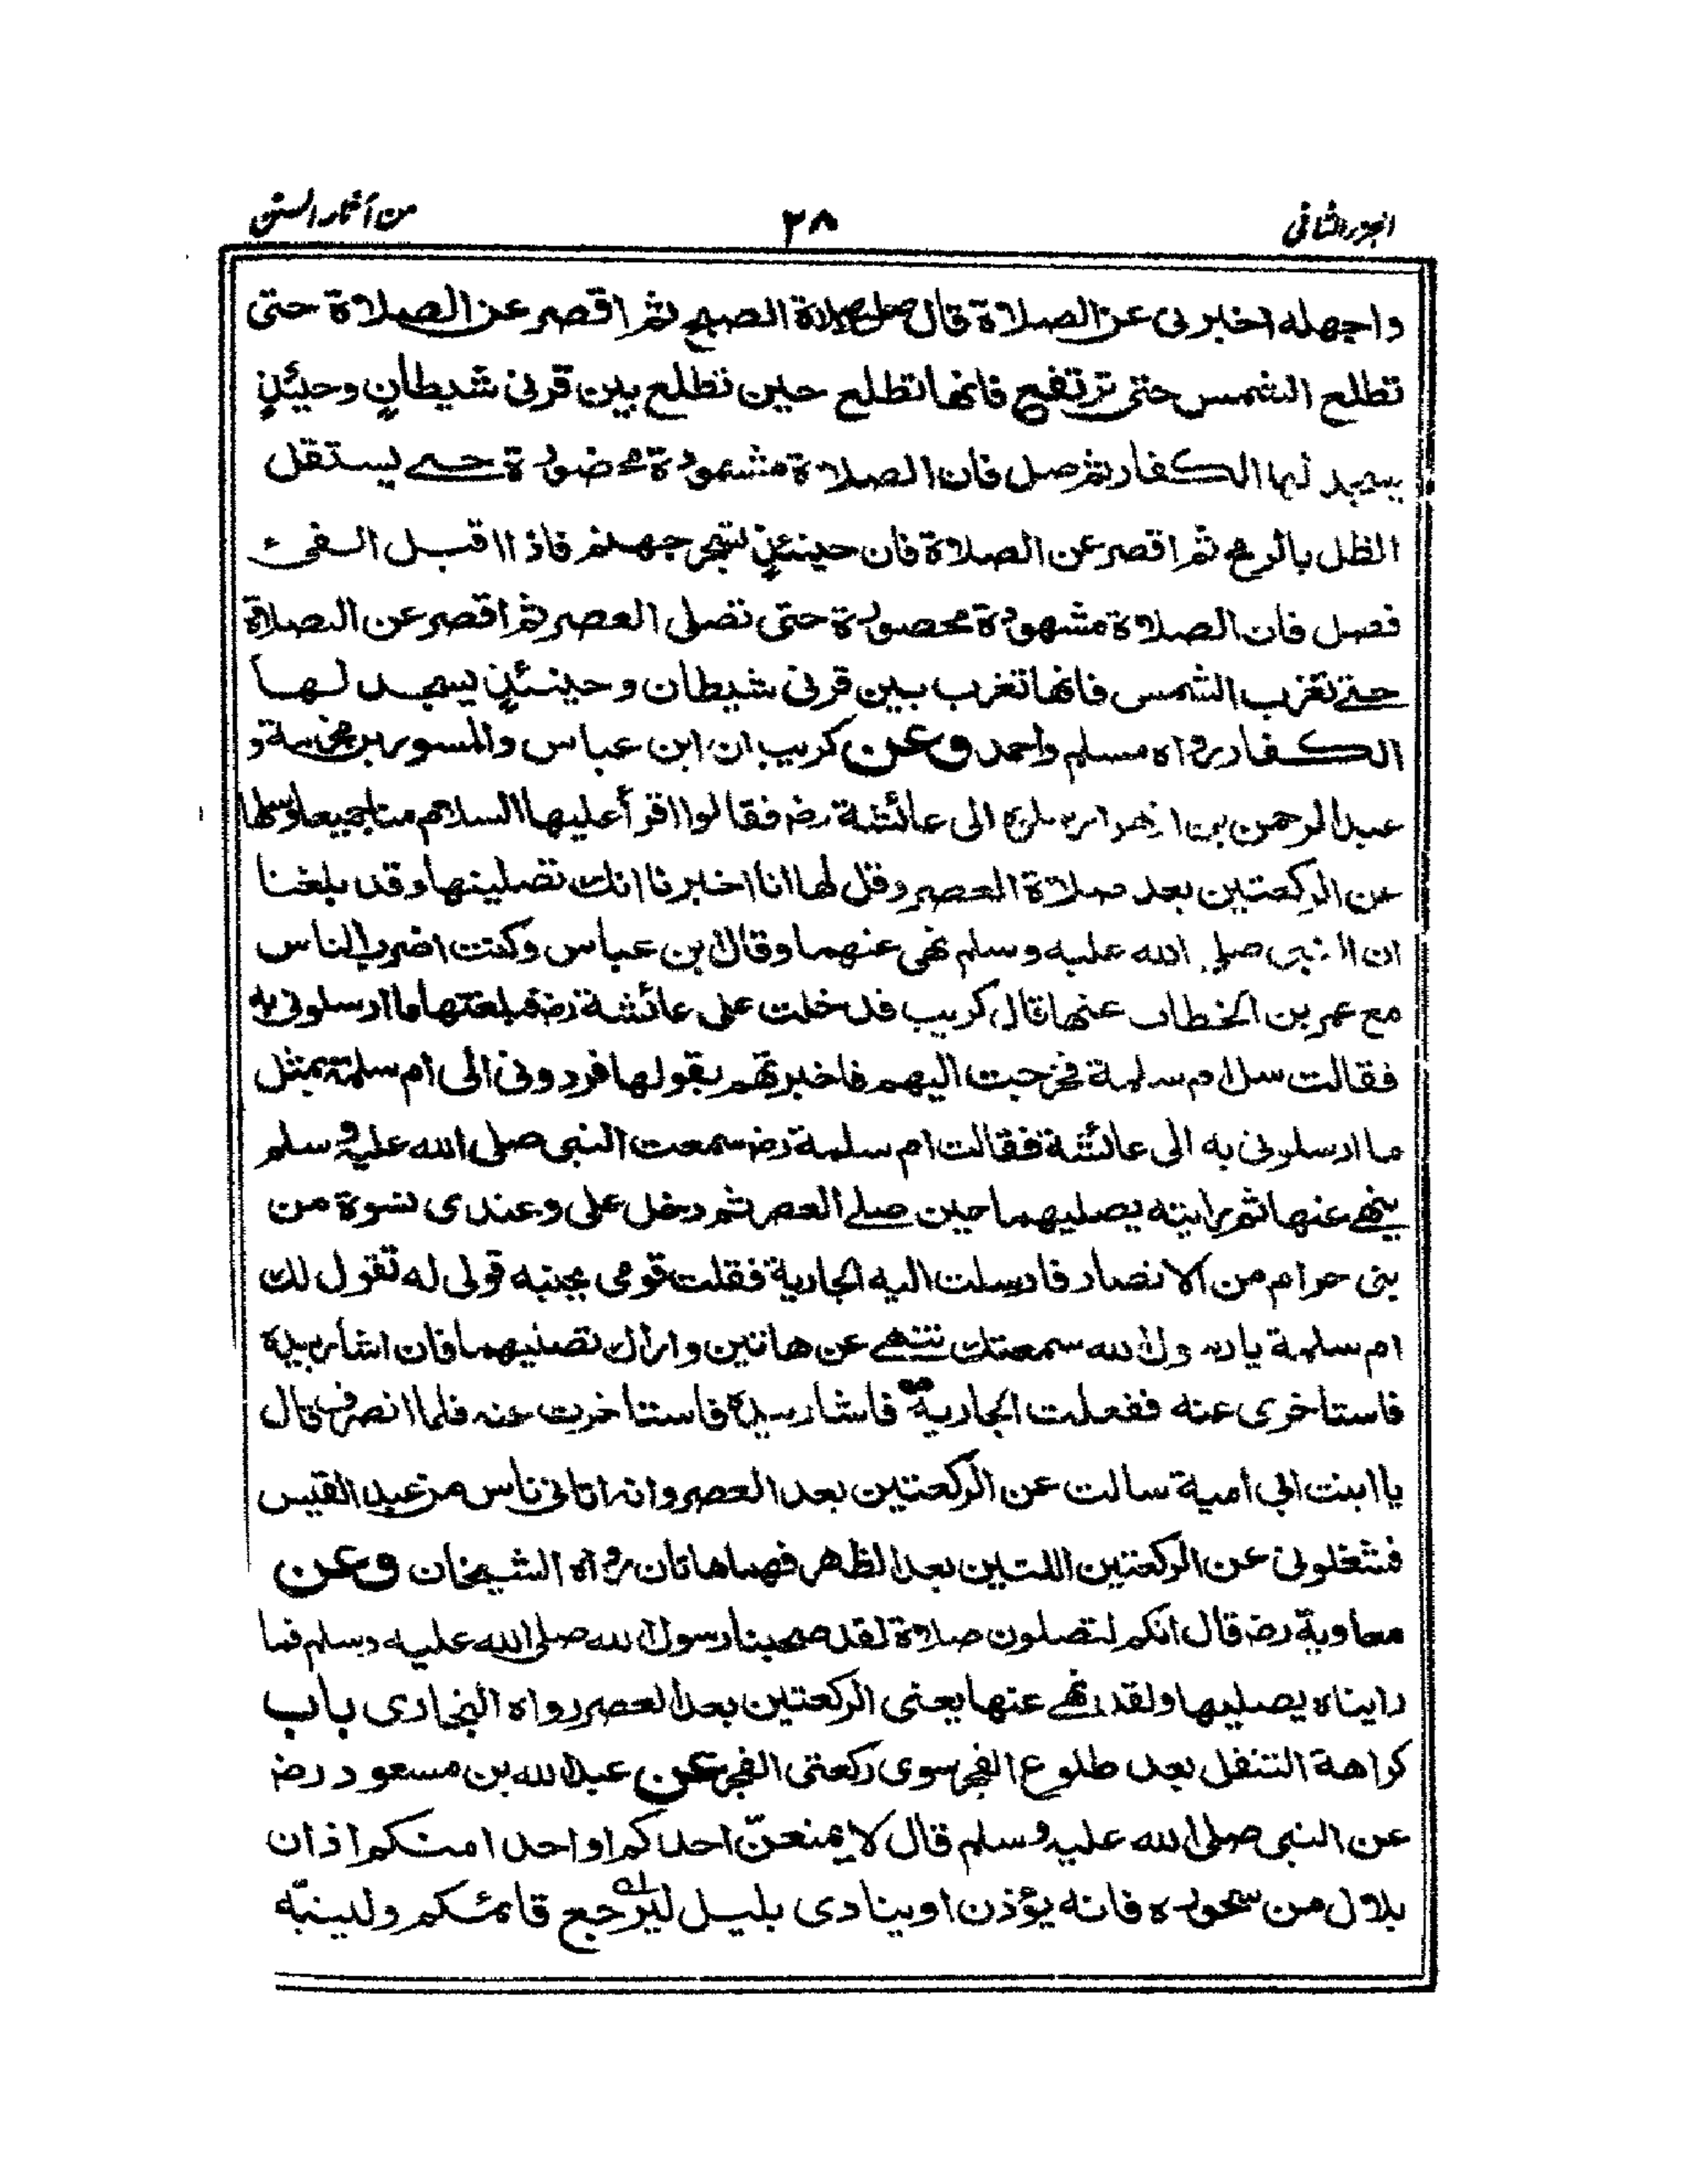 الجزء الثانی
٣٨
من آثار السنن
واجهله اخبرنی عن الصلاة قال صل صلاة الصبح ثم اقصر عن الصلاة حتی
تطلع الشمس حتی ترتفع فانها تطلع حين تطلع بين قرنی شيطانٍ وحينئذٍ
يسجد لها الكفار ثم صل فان الصلاة مشهودة محضورة حتے يستقل
الظل بالرمح ثم اقصر عن الصلاة فان حينئذٍ تسجر جهنم فاذا اقبل الفیء
فصل فان الصلاة مشهودة محضورة حتی تصلی العصر ثم اقصر عن الصلاة
حتے تغرب الشمس فانها تغرب بين قرنی شيطان وحينئذٍ يسجد لها
الكفار رواه مسلم واحمد وعن كريب ان ابن عباس والمسور بن مخرمة و
عبد الرحمن بن ازهر ارسلوه الی عائشة رضـ فقالوا اقرأ عليها السلام منا جميعا وسلها
عن الركعتين بعد صلاة العصر وقل لها انا اخبرنا انك تصلينها وقد بلغنا
ان النبی صلی الله عليه وسلم نهی عنهما وقال ابن عباس وكنت اضرب الناس
مع عمر بن الخطاب عنها قال كريب فدخلت علی عائشة رضـ فبلغتها ما ارسلونی به
فقالت سل ام سلمة فخرجت اليهم فاخبرتهم بقولها فردونی الی ام سلمة بمثل
ما ارسلونی به الی عائشة فقالت ام سلمة رضـ سمعت النبی صلی الله عليه وسلم
ينهے عنها ثم رايته يصليهما حين صلے العصر ثم دخل علی وعندی نسوة من
بنی حرام من الانصار فارسلت اليه الجارية فقلت قومی بجنبه قولی له تقول لك
ام سلمة يا رسول الله سمعتك تنهے عن هاتين واراك تصليهما فان اشار بيده
فاستاخری عنه ففعلت الجارية فاشار بيده فاستاخرت عنه فلما انصرف قال
يا ابنت ابی أمية سالت عن الركعتين بعد العصر وانه اتانی ناس من عبد القيس
فشغلونی عن الركعتين اللتين بعد الظهر فهما هاتان رواه الشيخان وعن
معاوية رضـ قال انكم لتصلون صلاة لقد صحبنا رسول الله صلی الله عليه وسلم فما
رايناه يصليها ولقد نهے عنها يعنی الركعتين بعد العصر رواه البخاری باب
كراهة التنفل بعد طلوع الفجر سوی ركعتی الفجر عن عبد الله بن مسعود رضـ
عن النبی صلی الله عليه وسلم قال لا يمنعنّ احدكم او احدا منكم اذان
بلال من سحوره فانه يؤذن او ينادی بليل ليرجع قائمكم ولينبّه